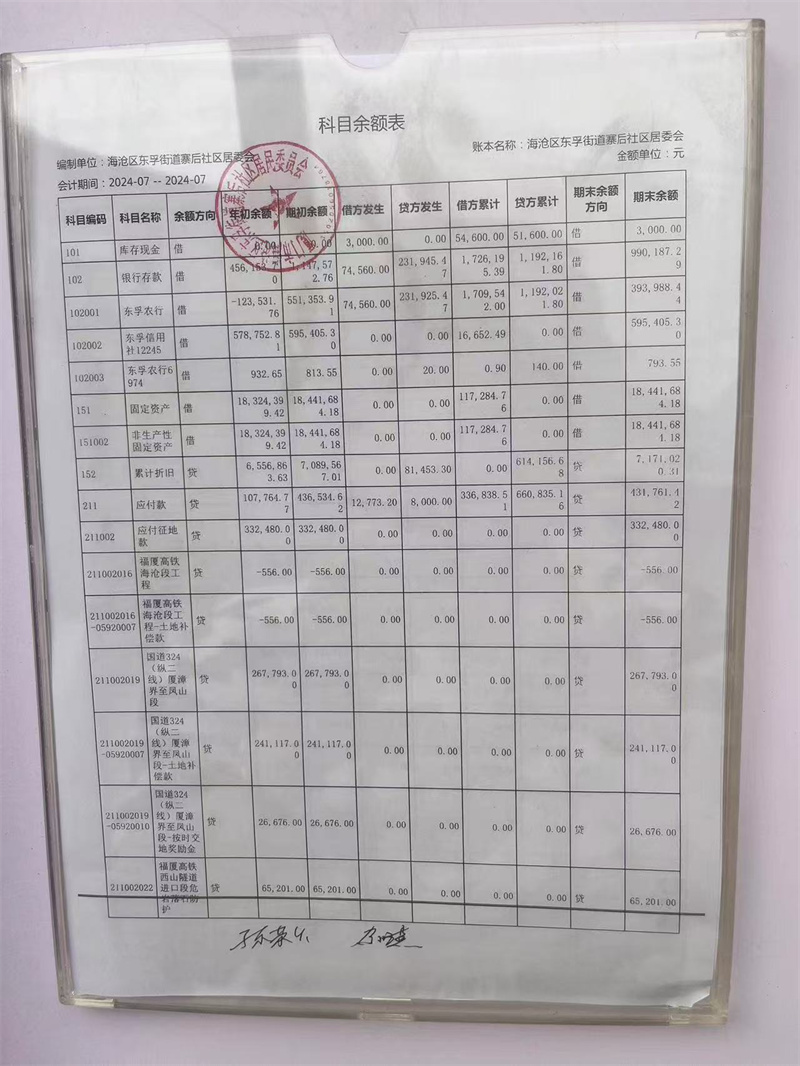 科目余额表
编制单位：海沧区东孚街道寨后社区居委会
账本名称：海沧区东孚街道寨后社区居委会
会计期间：2024-07 -- 2024-07
金额单位：元
科目编码 科目名称 余额方向 年初余额 期初余额 借方发生 贷方发生 借方累计 贷方累计 期末余额方向 期末余额
101 库存现金 借 0.00 3,000.00 0.00 54,600.00 51,600.00 借 3,000.00
102 银行存款 借 74,560.00 231,945.47 1,726,195.39 1,192,161.80 借 990,187.29
102001 东孚农行 借 -123,531.76 551,353.91 74,560.00 231,925.47 1,709,542.00 1,192,021.80 借 393,988.44
102002 东孚信用社12245 借 578,752.81 595,405.30 0.00 0.00 16,652.49 0.00 借 595,405.30
102003 东孚农行6974 借 932.65 813.55 0.00 20.00 0.90 140.00 借 793.55
151 固定资产 借 18,324,399.42 18,441,684.18 0.00 0.00 117,284.76 0.00 借 18,441,684.18
151002 非生产性固定资产 借 18,324,399.42 18,441,684.18 0.00 0.00 117,284.76 0.00 借 18,441,684.18
152 累计折旧 贷 6,556,863.63 7,089,567.01 0.00 81,453.30 0.00 614,156.68 贷 7,171,020.31
211 应付款 贷 107,764.77 436,534.62 12,773.20 8,000.00 336,838.51 660,835.16 贷 431,761.42
211002 应付征地款 贷 332,480.00 332,480.00 0.00 0.00 0.00 0.00 贷 332,480.00
211002016 福厦高铁海沧段工程 贷 -556.00 -556.00 0.00 0.00 0.00 0.00 贷 -556.00
211002016-05920007 福厦高铁海沧段工程-土地补偿款 贷 -556.00 -556.00 0.00 0.00 0.00 0.00 贷 -556.00
211002019 国道324（纵二线）厦漳界至凤山段 贷 267,793.00 267,793.00 0.00 0.00 0.00 0.00 贷 267,793.00
211002019-05920007 国道324（纵二线）厦漳界至凤山段-土地补偿款 贷 241,117.00 241,117.00 0.00 0.00 0.00 0.00 贷 241,117.00
211002019-05920010 国道324（纵二线）厦漳界至凤山段-按时交地奖励金 贷 26,676.00 26,676.00 0.00 0.00 0.00 0.00 贷 26,676.00
211002022 福厦高铁西山隧道进口段危岩落石防护 贷 65,201.00 65,201.00 0.00 0.00 0.00 0.00 贷 65,201.00